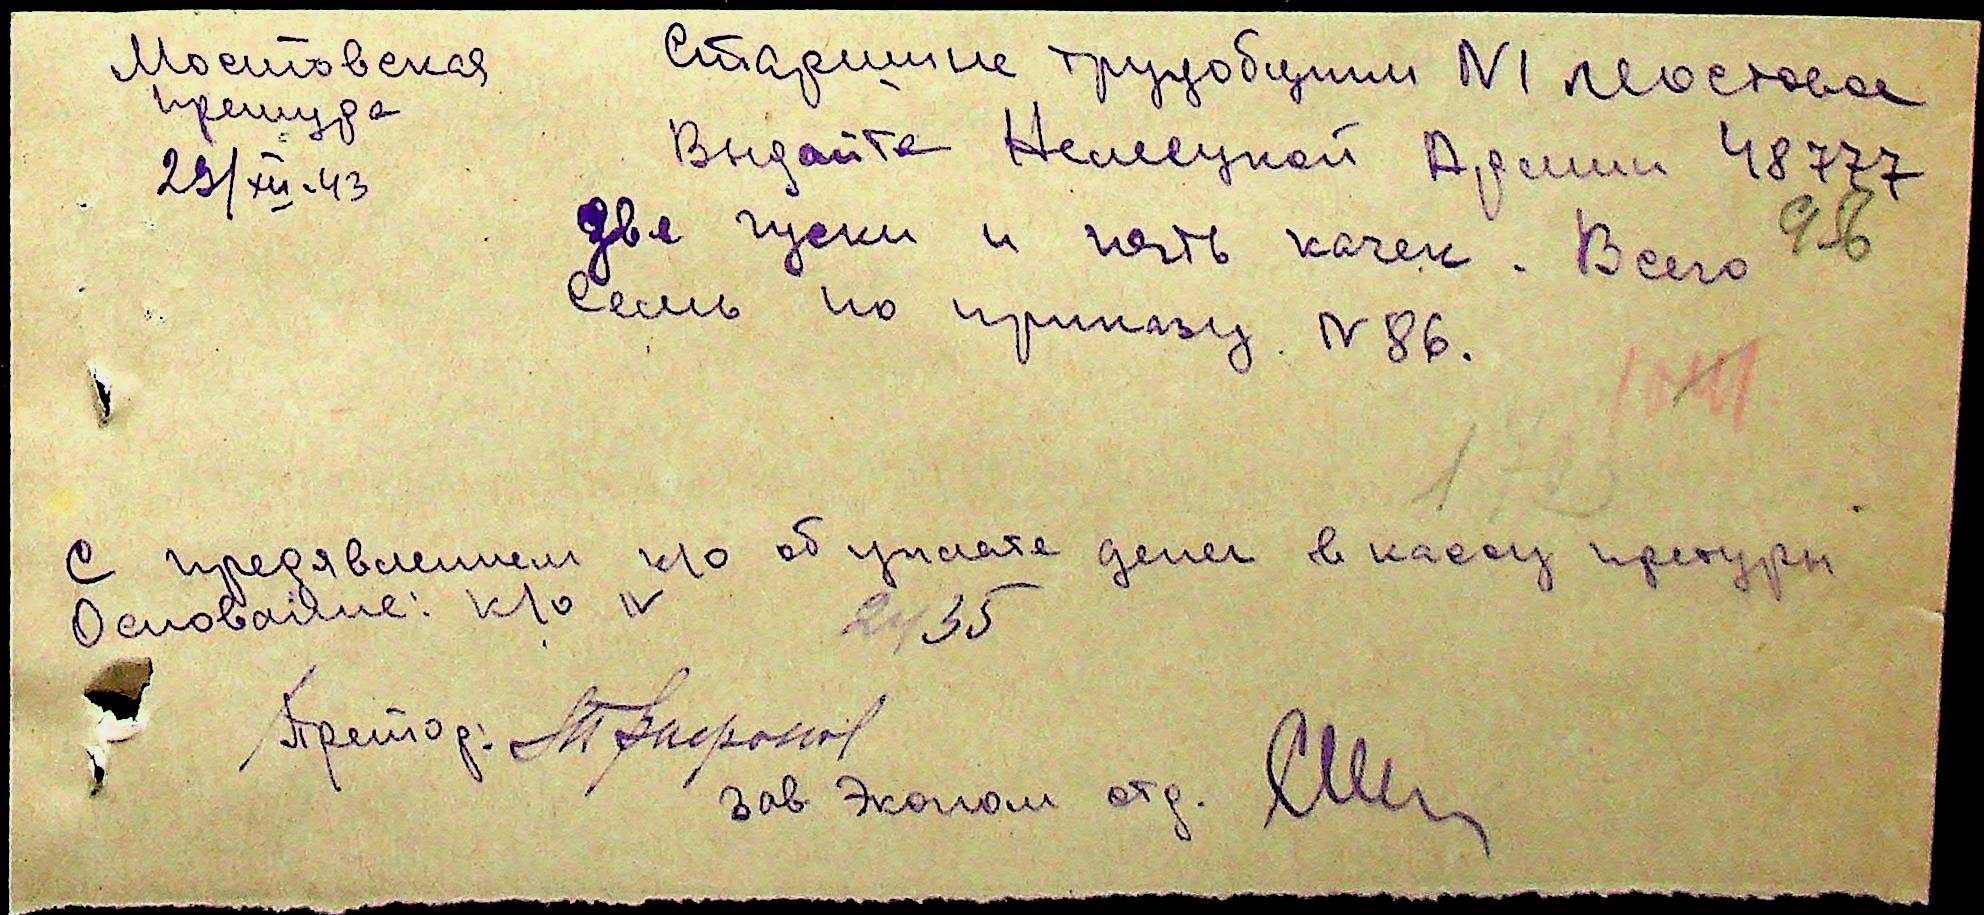 Мостовская
претура
29/XII-43
Старшине трудобщин N1 Мостовое
Выдайте Немецкой Армии 48777
98
две гуски и пять качек. Всего
Семь по приказу N 86.
С предявлением к/о об уплате денег в кассу претуры
Основание: к/о N 2435
Претор:
Зав Эконом отд.